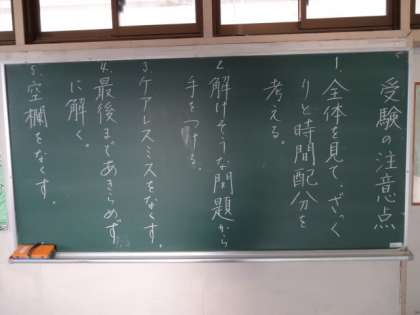 受験の注意点
1.全体を見て、ざっく
りと時間配分を
考える。
2.解けそうな問題から
手をつける。
3.ケアレスミスをなくす。
4.最後まであきらめず
に解く。
5.空欄をなくす。